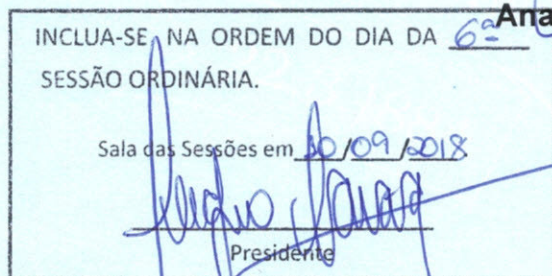 INCLUA-SE NA ORDEM DO DIA DA 6ª Ana
SESSÃO ORDINÁRIA.
Sala das Sessões em /09/2018
Presidente